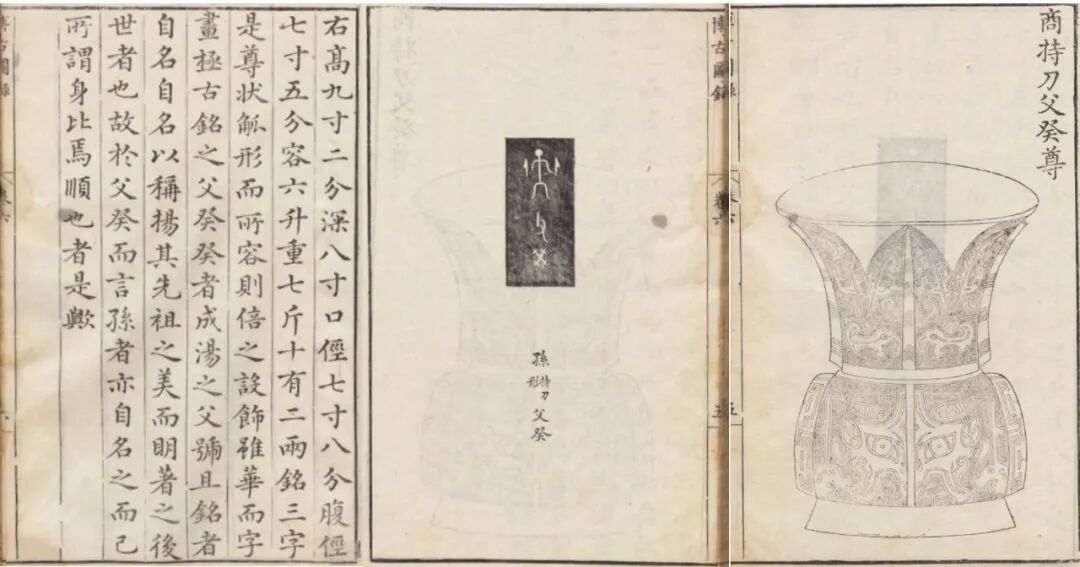 商持刀父癸尊
博古圖錄
卷六
五
孫持刀形父癸
右髙九寸二分深八寸口俓七寸八分腹俓
七寸五分容六升重七斤十有二兩銘三字
是尊狀觚形而所容則倍之設飾雖華而字
畫極古銘之父癸癸者成湯之父號且銘者
自名自名以稱揚其先祖之美而眀著之後
世者也故於父癸而言孫者亦自名之而已
所謂身比焉順也者是歟